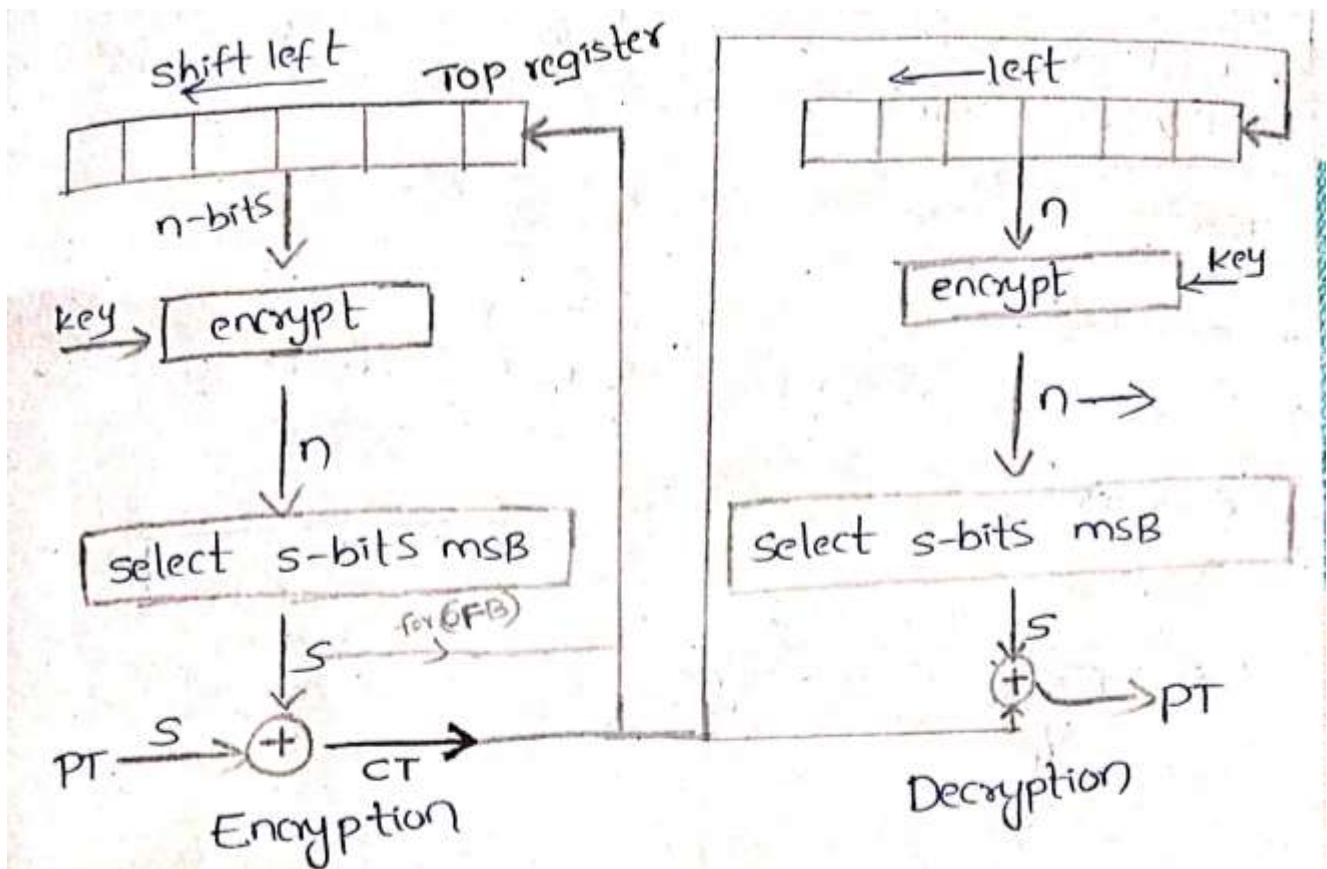 shift left
Top register
n-bits
key
encrypt
n
select s-bits MSB
S
for (OFB)
PT
S
+
CT
Encryption
left
n
encrypt
key
n
select s-bits MSB
S
+
PT
Decryption